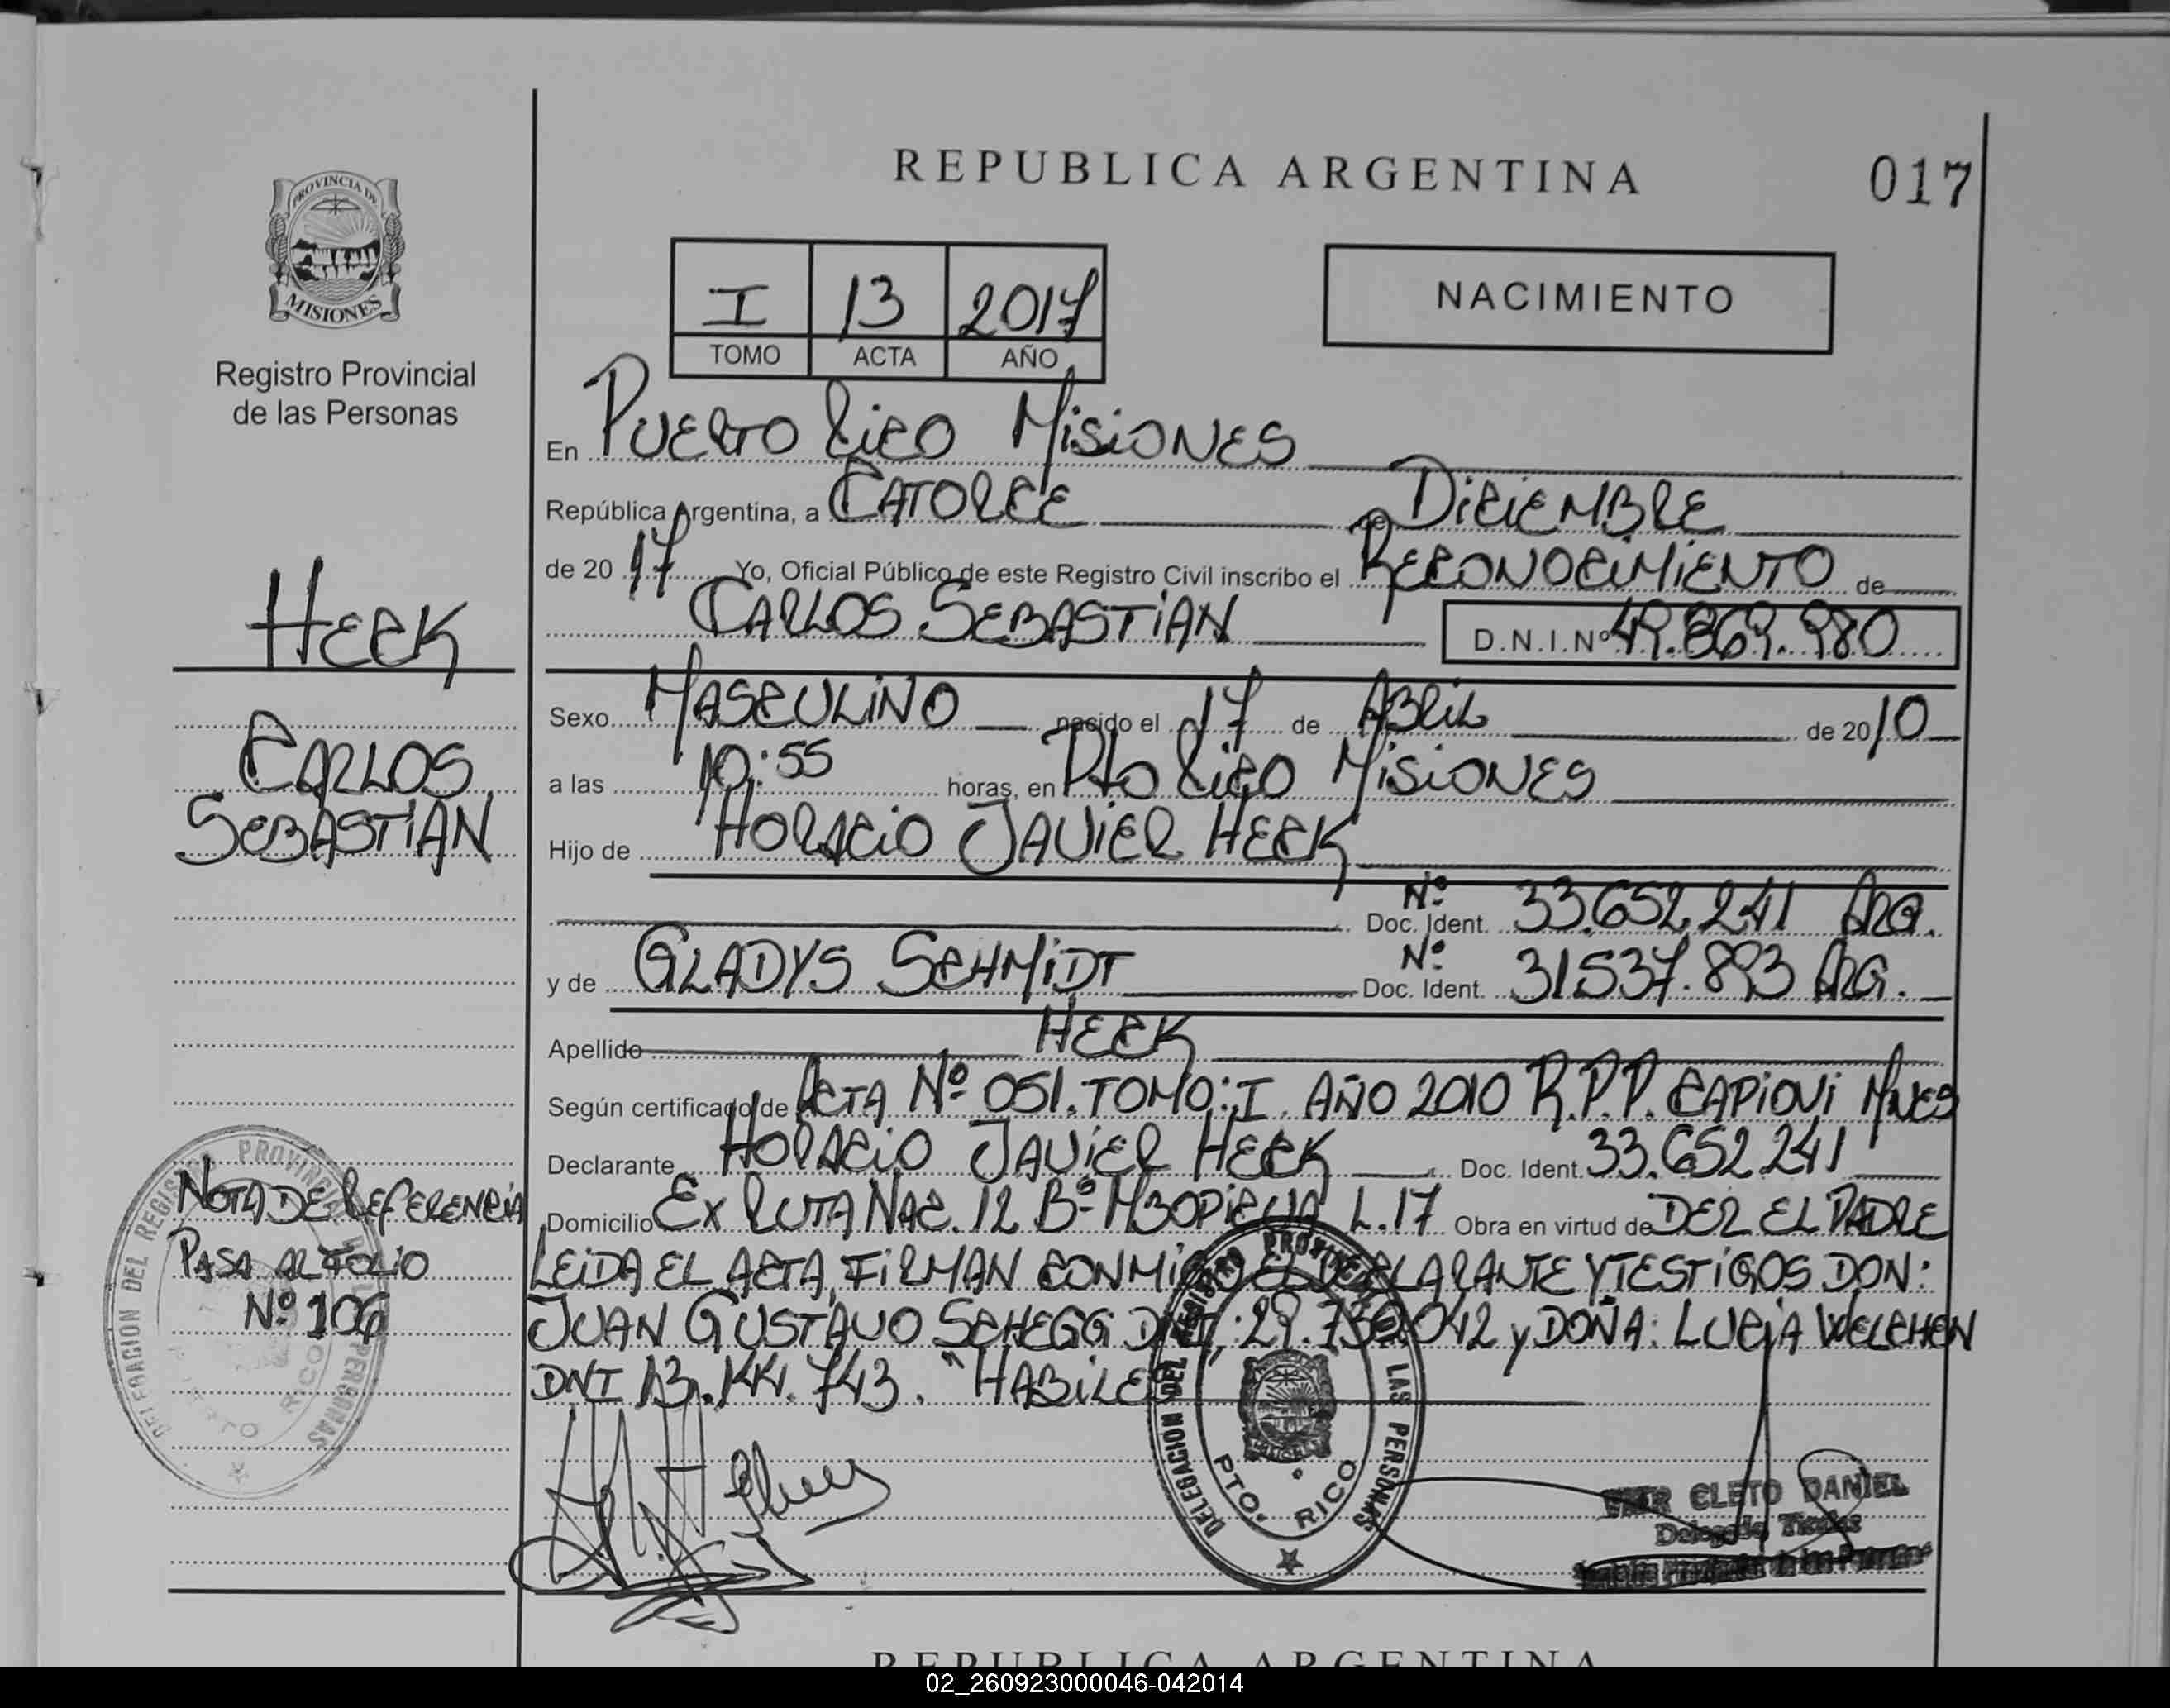 REPUBLICA ARGENTINA
017
PROVINCIA DE
MISIONES
Registro Provincial
de las Personas
I 13 2017
TOMO ACTA AÑO
NACIMIENTO
En PUERTO RICO MISIONES
República Argentina, a CATORCE de DICIEMBRE
de 20 17 Yo, Oficial Público de este Registro Civil inscribo el RECONOCIMIENTO de
CARLOS SEBASTIAN D.N.I.Nº 49.869.980
HECK
CARLOS
SEBASTIAN
Sexo MASCULINO nacido el 17 de ABRIL de 20 10
a las 10:55 horas, en Pto RICO MISIONES
Hijo de HORACIO JAVIER HECK
Doc. Ident. Nº 33.652.241 ARG.
y de GLADYS SCHMIDT Doc. Ident. Nº 31.537.893 ARG.
Apellido HECK
Según certificado de ACTA Nº 051. TOMO: I. AÑO 2010 R.P.P. CAPIOVI MNES
Declarante HORACIO JAVIER HECK Doc. Ident. 33.652.241
Domicilio EX RUTA NAC. 12 Bº L.17 Obra en virtud de SER EL PADRE
LEIDA EL ACTA, FIRMAN CONMIGO EL DECLARANTE Y TESTIGOS DON:
JUAN GUSTAVO SCHEGG DNI: 29. 042 y DOÑA: LUCIA WELCHEN
DNI 13. 743. "HABILES
NOTA DE REFERENCIA
PASA AL FOLIO
Nº 106
DELEGACION DEL REGISTRO PROVINCIAL DE LAS PERSONAS
PUERTO RICO
DELEGACION DEL REGISTRO PROVINCIAL DE LAS PERSONAS
PTO. RICO
CLETO DANIEL
Delegado Titular
Registro Provincial de las Personas
REPUBLICA ARGENTINA
02_260923000046-042014